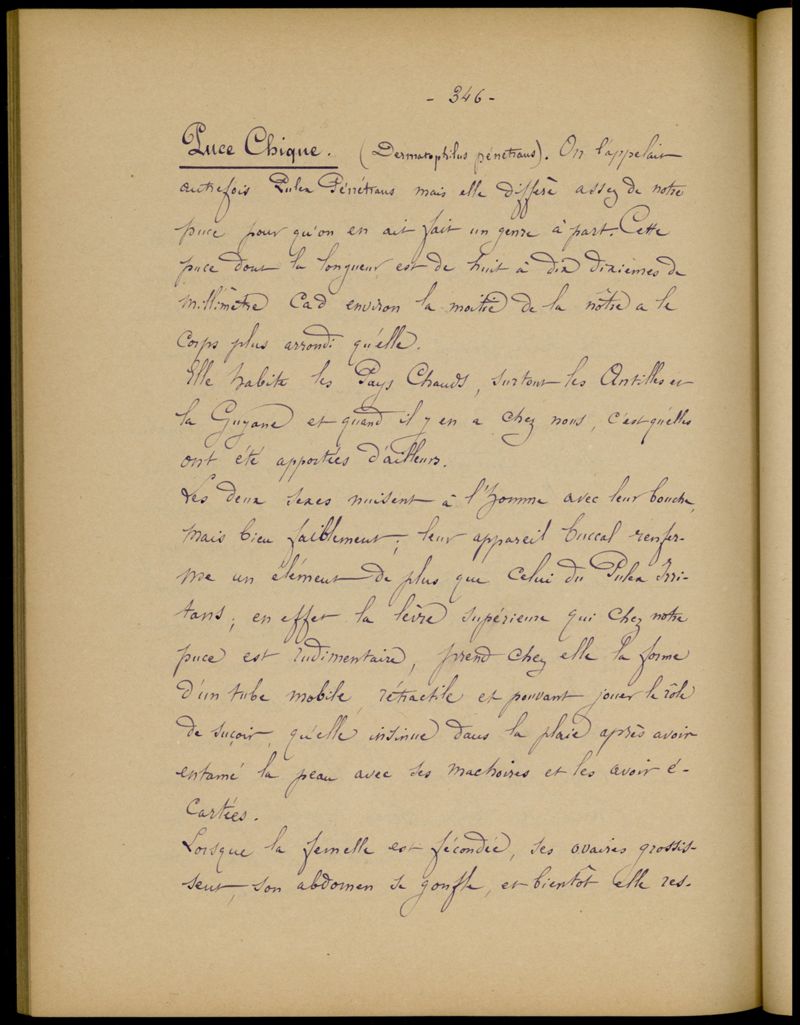 - 346 -
Puce Chique. (Dermatophilus pénétrans). On l'appelait
autrefois Pulex Pénétrans mais elle diffère assez de notre
puce pour qu'on en ait fait un genre à part. Cette
puce dont la longueur est de huit à dix dixièmes de
Millimètre Cad environ la moitié de la nôtre a le
Corps plus arrondi qu'elle.
Elle habite les Pays Chauds, surtout les Antilles et
la Guyane et quand il y en a chez nous, c'est qu'elles
ont été apportées d'ailleurs.
Les deux sexes nuisent à l'homme avec leur bouche,
Mais bien faiblement; leur appareil buccal renfer-
me un élément de plus que celui du Pulex Irri-
tans; en effet la lèvre supérieure qui chez notre
puce est rudimentaire, prend chez elle la forme
d'un tube mobile, rétractile et pouvant jouer le rôle
de suçoir, qu'elle insinue dans la plaie après avoir
entamé la peau avec ses machoires et les avoir é-
cartées.
Lorsque la femelle est fécondée, ses ovaires grossis-
sent, son abdomen se gonfle, et bientôt elle res-